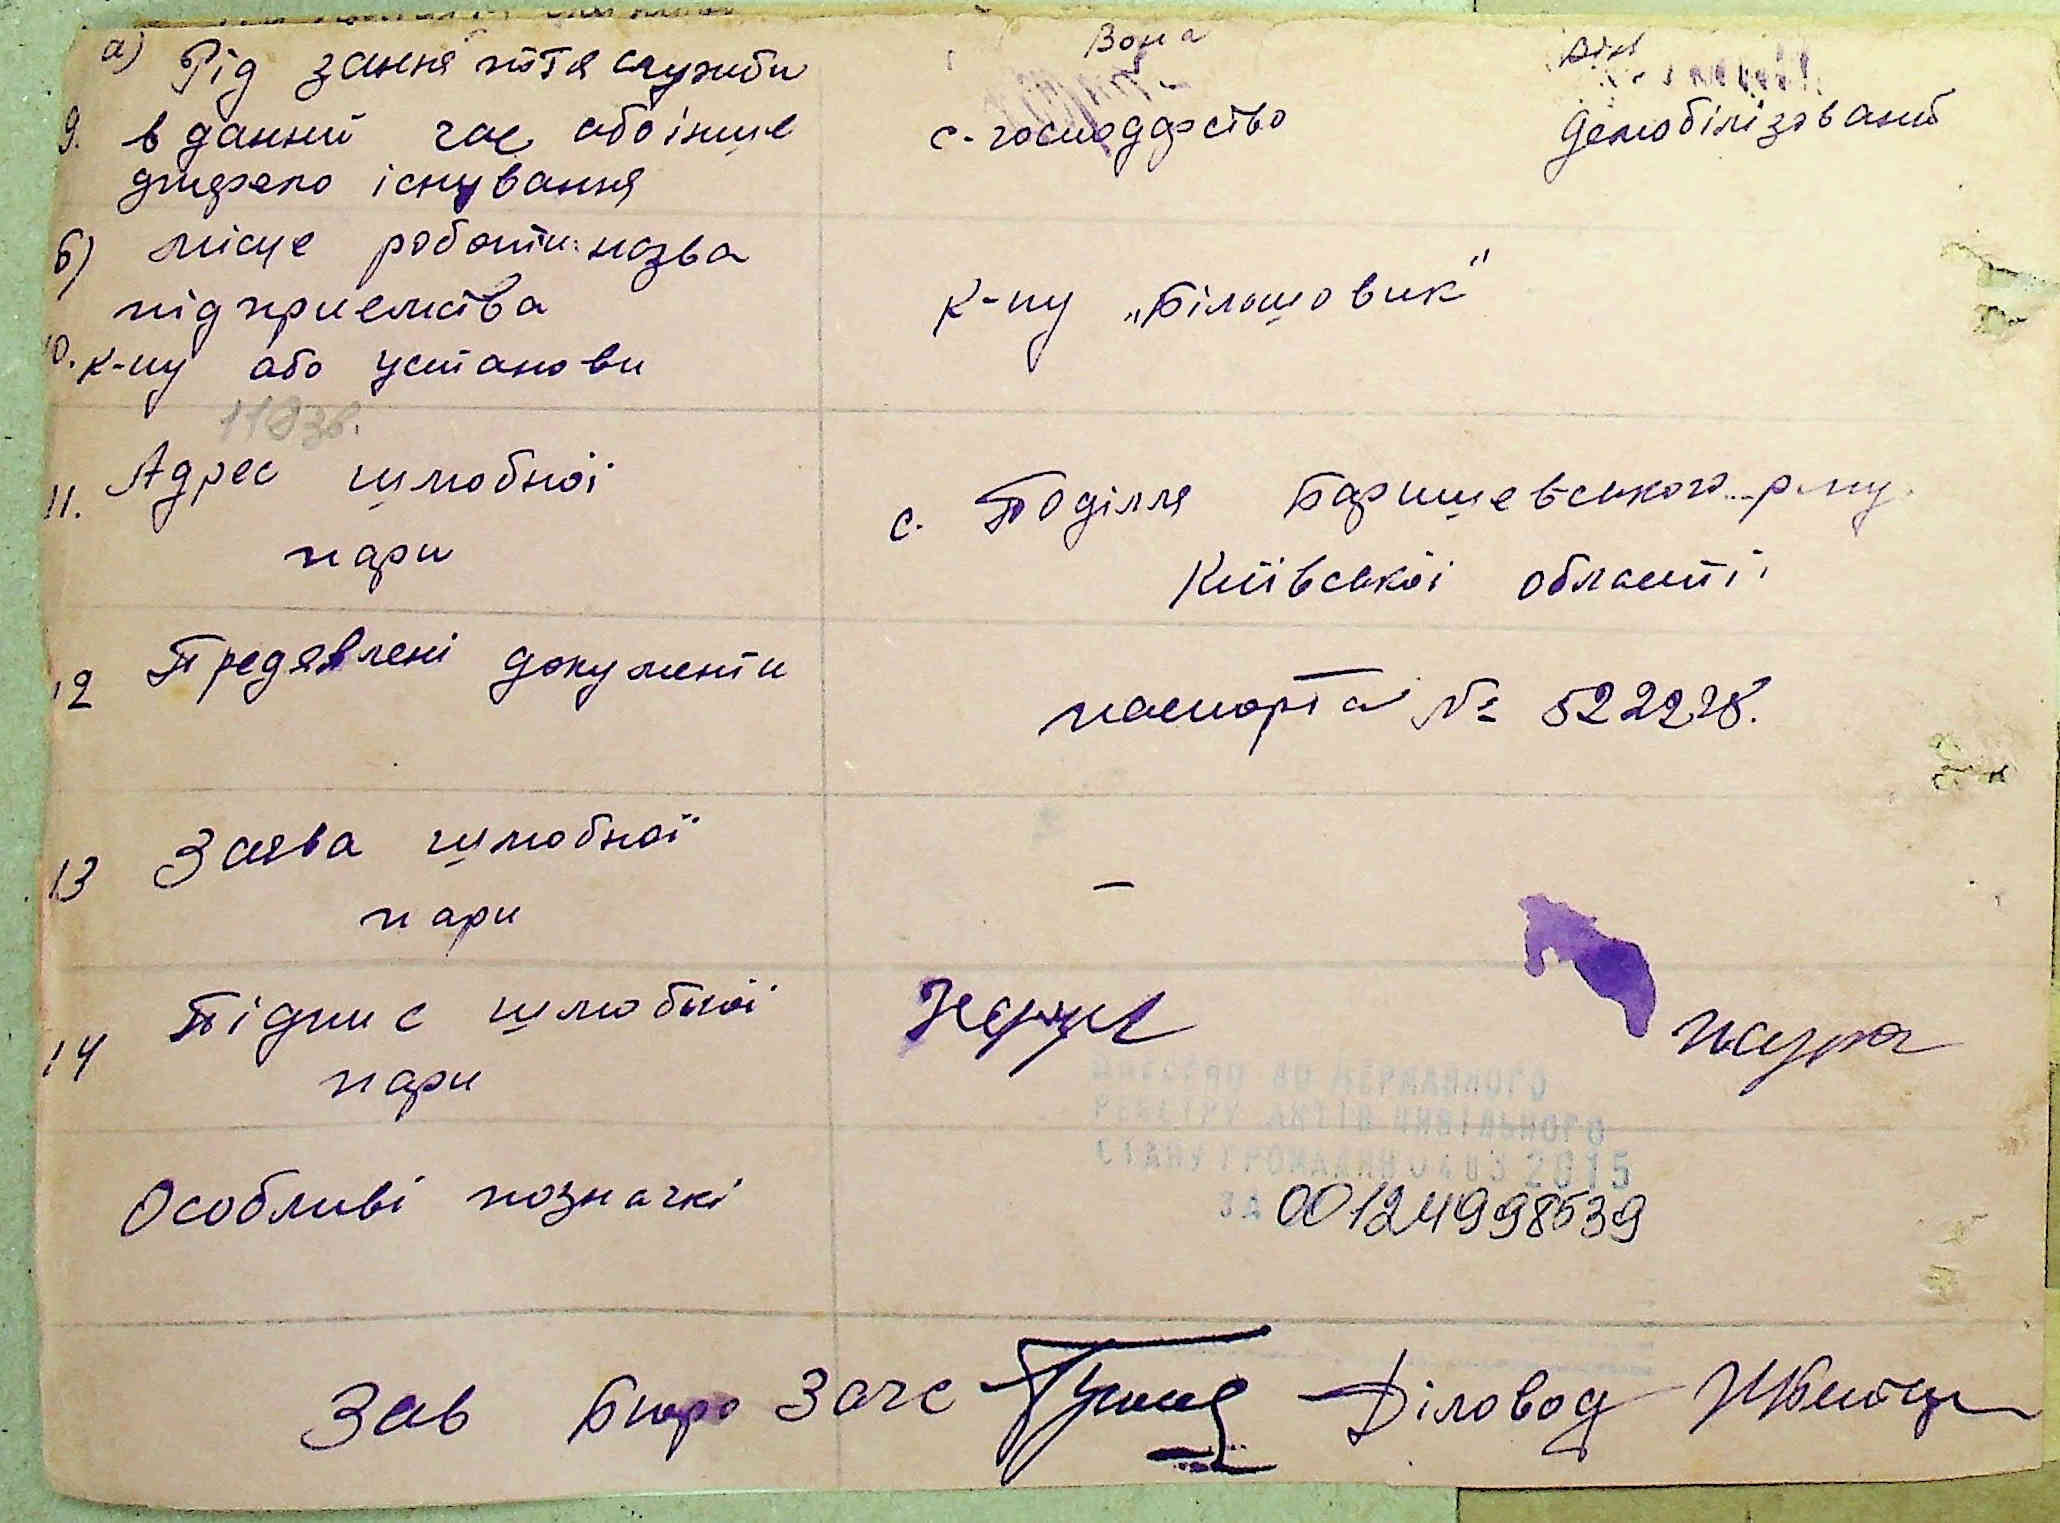 Вона Він
а) Рід заняття служби
9. в данний час або інше с-господарство демобілізований
джерело існування
б) місце роботи: назва
підприємства к-пу „Більшовик"
10. к-пу або установи
11. Адрес шлюбної с. Поділля Баришевського р-ну
пари Київської області
12 Предявлені документи паспорта № 522228.
13 Заява шлюбної –
пари
14 Підпис шлюбної
пари
Внесено до Державного
реєстру актів цивільного
стану громадян 04 03 2015
Особливі позначкі за 00124998539
Зав Бюро Загс Діловод